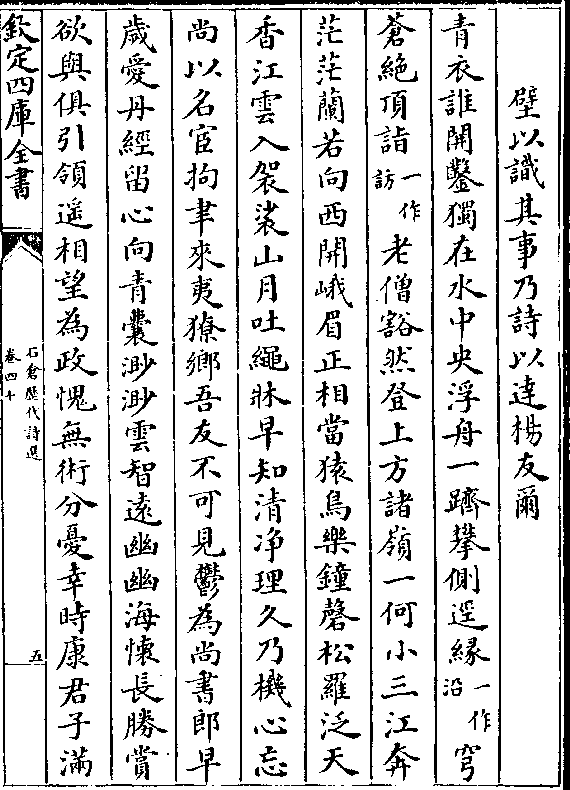 壁以識其事乃詩以達楊友爾
青衣誰開鑿獨在水中央浮舟一躋攀側逕緣一作沿穹
蒼絶頂詣一作訪老僧豁然登上方諸嶺一何小三江奔
茫茫蘭若向西開峨眉正相當猿鳥樂鐘磬松羅泛天
香江雲入袈裟山月吐繩牀早知清净理久乃機心忘
尚以名宦拘聿來夷獠鄉吾友不可見鬱為尚書郎早
歲愛丹經留心向青囊渺渺雲智遠幽幽海懷長勝賞
欲與俱引領遥相望為政愧無術分憂幸時康君子滿
欽定四庫全書
石倉歷代詩選
卷四十
五